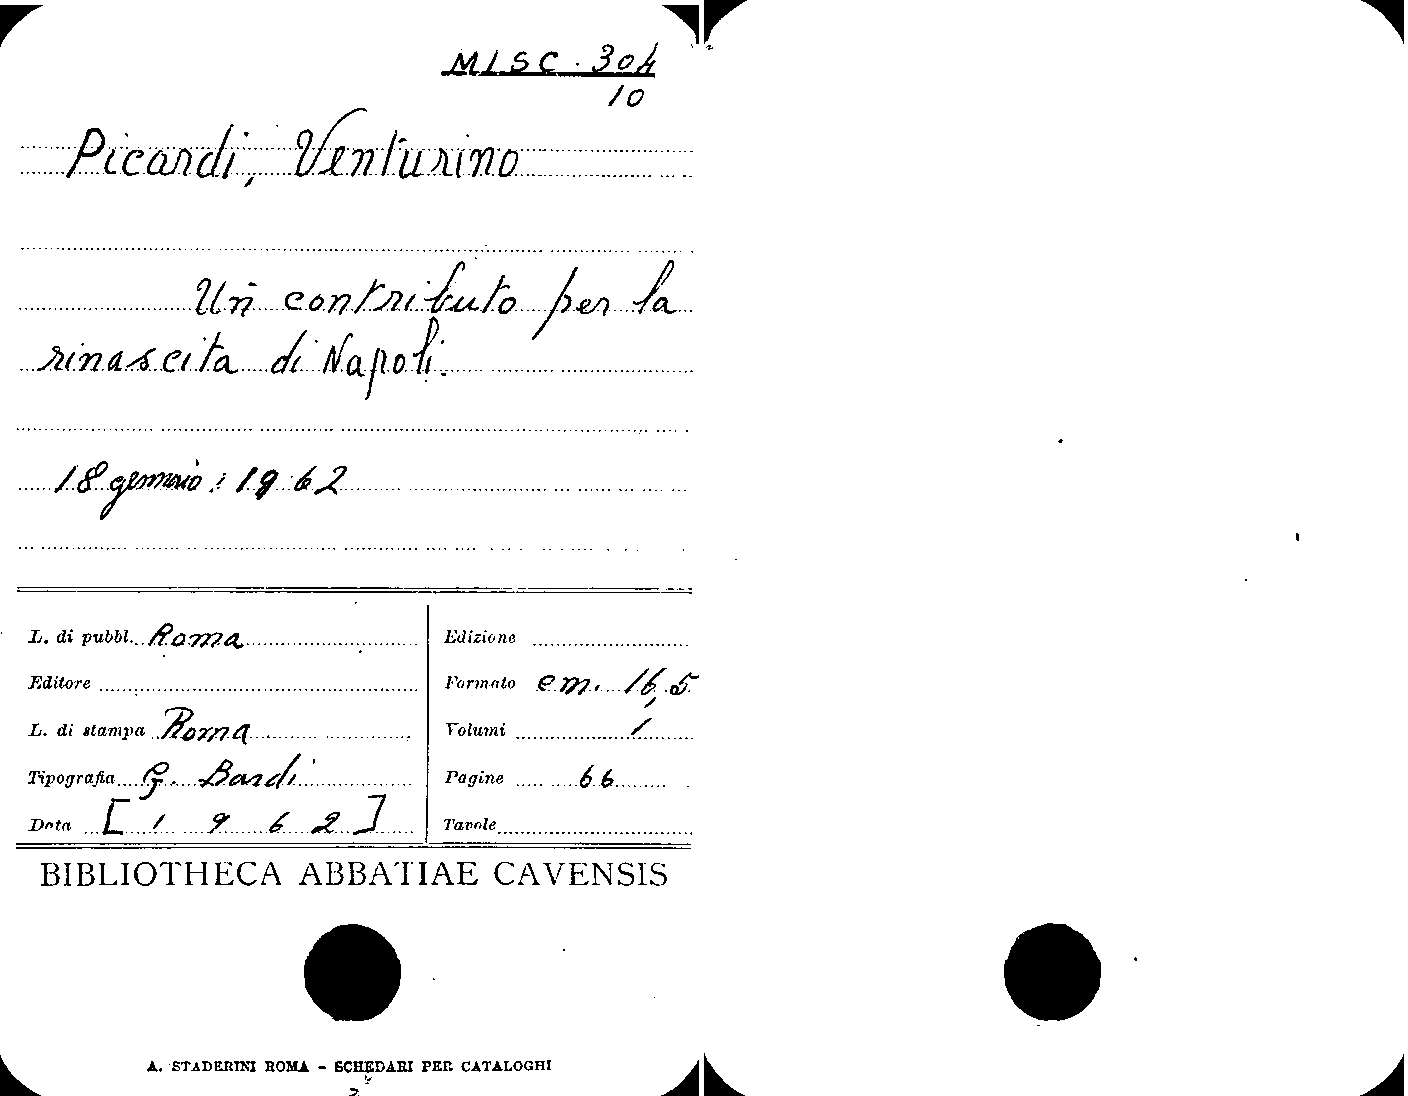 MISC. 304
10
Picardi, Venturino
Un contributo per la
rinascita di Napoli.
18 gennaio 1962
L. di pubbl. Roma
Editore
L. di stampa Roma
Tipografia G. Bardi
Data [1962]
Edizione
Formato cm. 16,5
Volumi 1
Pagine 66
Tavole
BIBLIOTHECA ABBATIAE CAVENSIS
A. STADERINI ROMA - SCHEDARI PER CATALOGHI